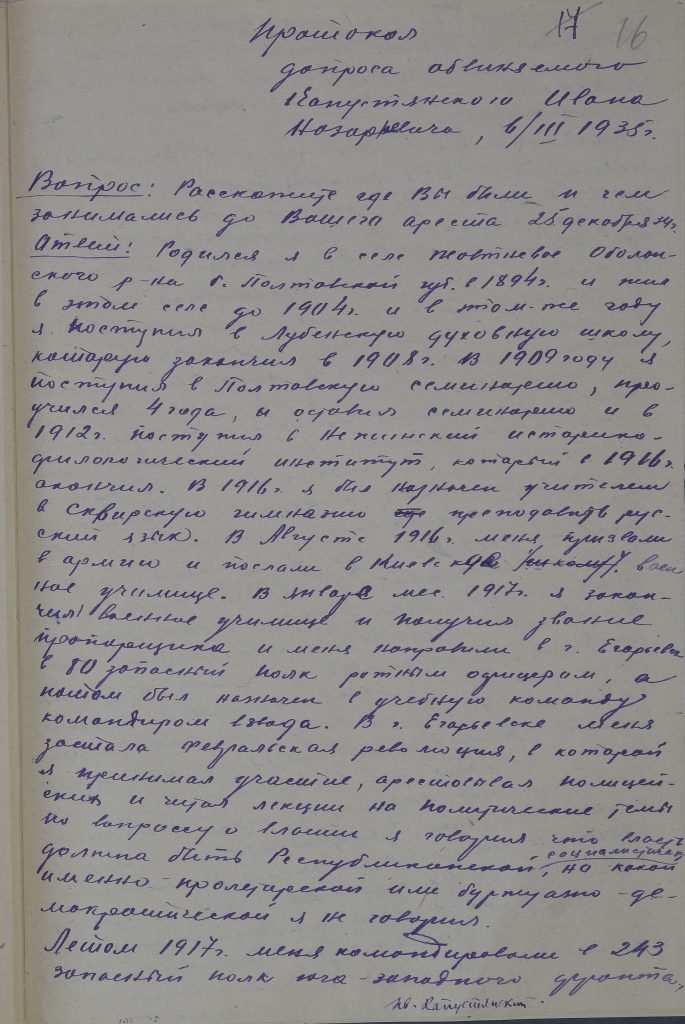 17 16
Протокол
допроса обвиняемого
Капустянского Ивана
Назарьевича, 6/III 1935г.
Вопрос: Расскажите где Вы были и чем
занимались до Вашего ареста 25 декабря 34г.
Ответ: Родился я в селе Жовтневое Оболон-
ского р-на б. Полтавской губ. в 1894г. и жил
в этом селе до 1904г. и в этом-же году
я поступил в Лубенскую духовную школу,
которую закончил в 1908г. В 1909 году я
поступил в Полтавскую семинарию, про-
учился 4 года, и оставил семинарию и в
1912г. поступил в Нежинский историко-
филологический институт, который в 1916г.
окончил. В 1916г. я был назначен учителем
в Сквирскую гимназию преподавать рус-
ский язык. В Августе 1916г. меня призвали
в армию и послали в Киевское воен
ное училище. В январе мес. 1917г. я закон-
чил военное училище и получил звание
прапорщика и меня направили в г. Егорьевск
в 80 запасный полк ротным офицером, а
потом был назначен в учебную команду
командиром взвода. В г. Егарьевске меня
застала Февральская революция, в которой
я принимал участие, арестовывал полицей-
ских и читал лекции на политические темы
по вопросу о власти я говорил что власть
должна быть Республиканской, социалистическ. но какой
именно - пролетарской или буржуазно-де-
мократической я не говорил.
Летом 1917г. меня командировали в 243
запасный полк юго-западного фронта,
Ив. Капустянский